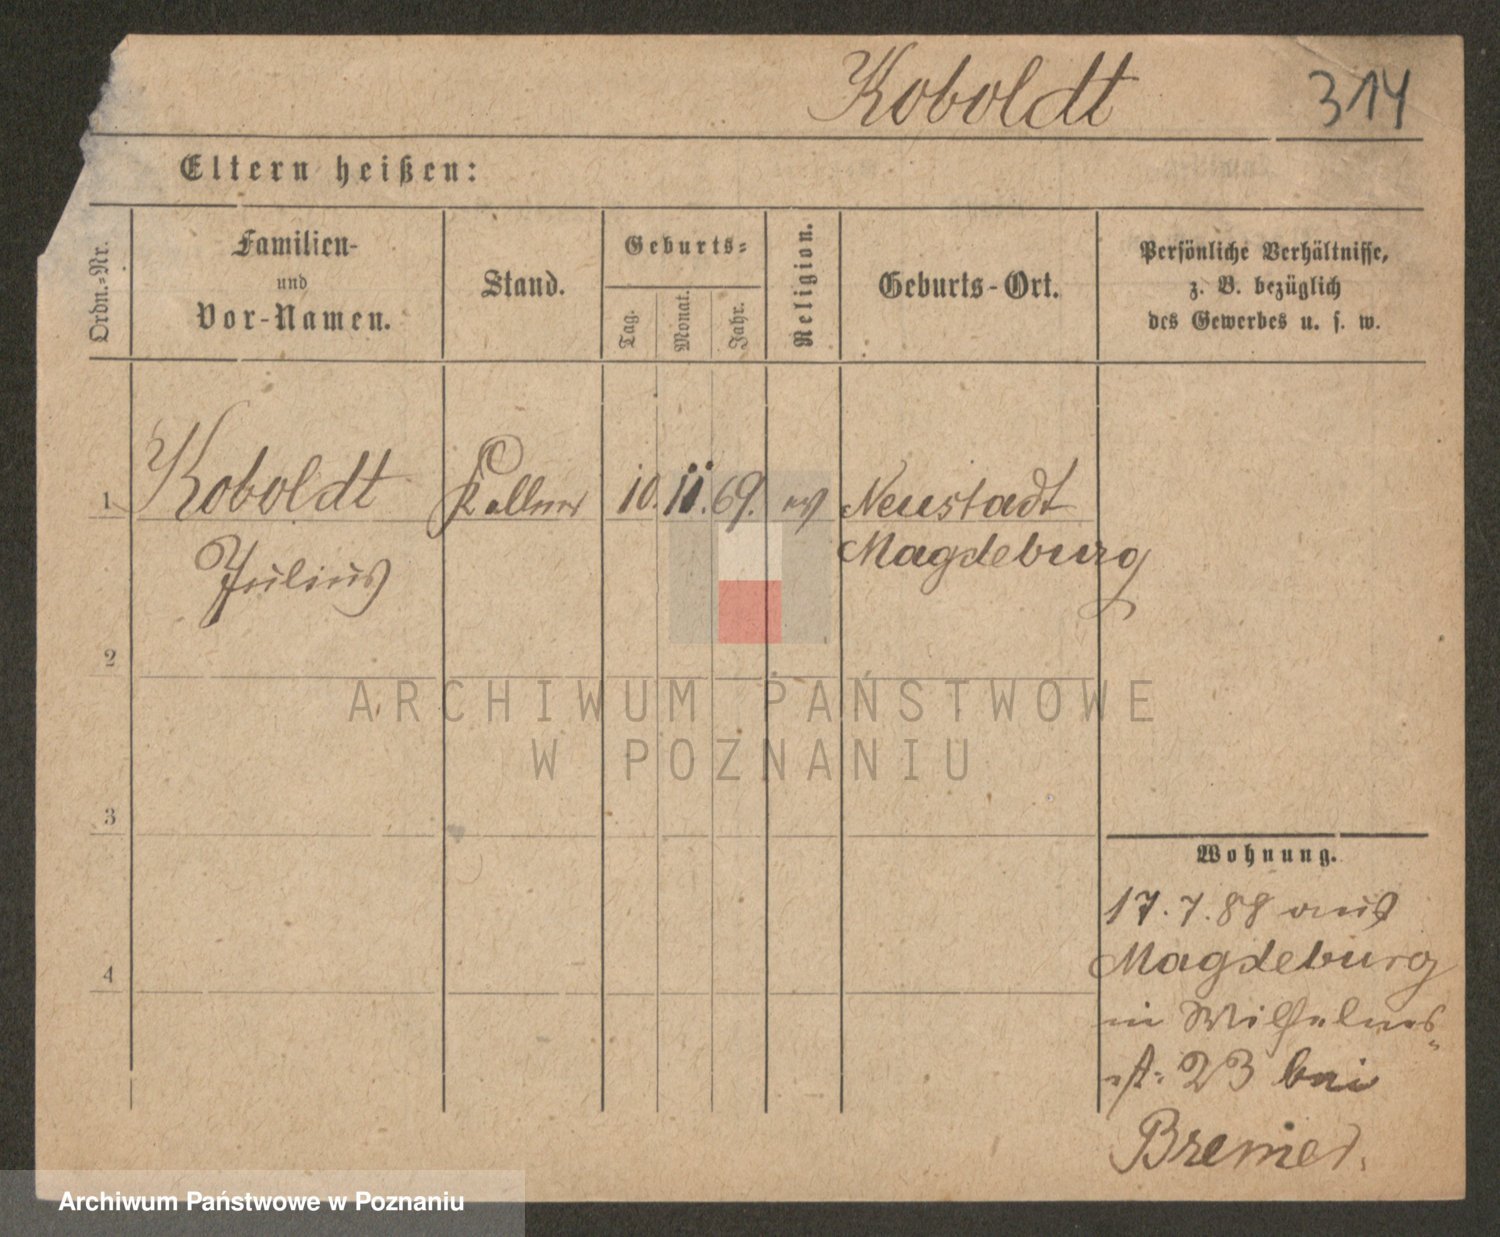 Koboldt 314
Eltern heißen:
Ordn.-Nr.
Familien-
und
Vor-Namen.
Stand.
Geburts-
Tag.
Monat.
Jahr.
Religion.
Geburts-Ort.
Persönliche Verhältnisse,
z. B. bezüglich
des Gewerbes u. s. w.
1 Koboldt Kellner 10. 11. 69. ev Neustadt
Julius Magdeburg
2
3
4
Wohnung.
17. 7. 88 aus
Magdeburg
in Wilhelms
st. 23 bei
Bremer.
ARCHIWUM PAŃSTWOWE
W POZNANIU
Archiwum Państwowe w Poznaniu